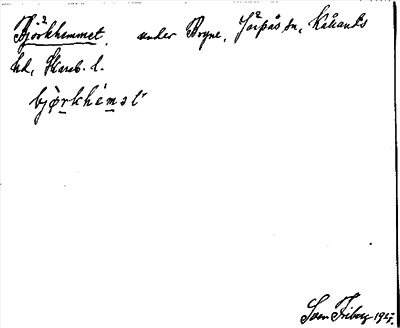 Björkhemmet, under Bryne, Järpås sn, Kållands
hd, Skarab. l.
bjørkhèmət
Sven Friberg 1927.